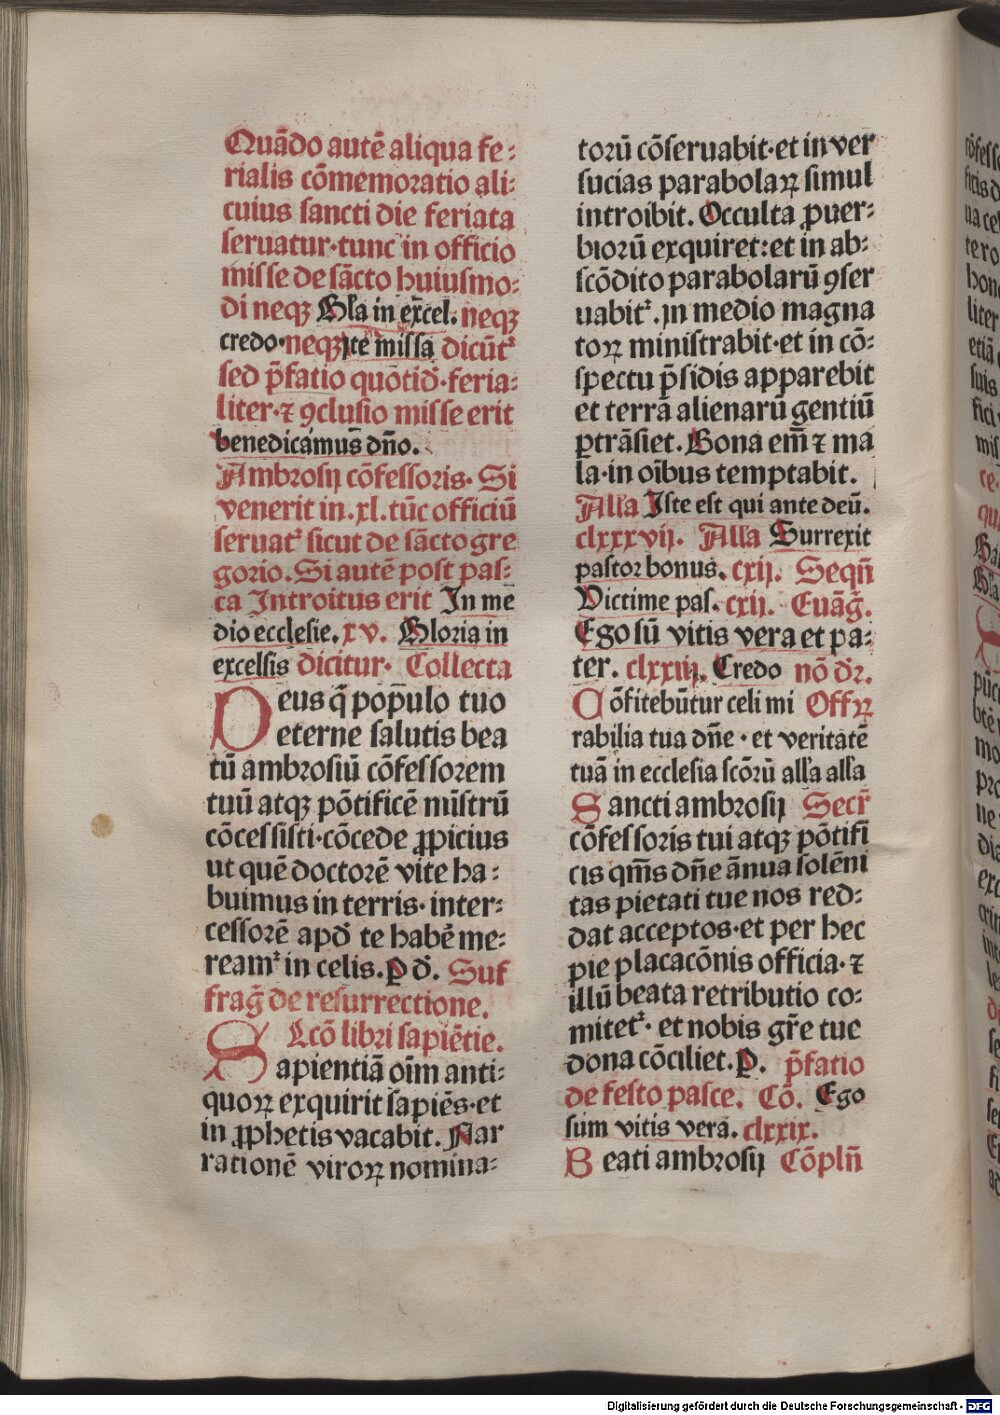 Quādo autē aliqua fe⸗
rialis cōmemoratio ali⸗
cuius sancti die feriata
seruatur·tunc in officio
misse de sācto huiusmo⸗
di neqꝫ Gl'a in ex̄cel. neqꝫ
credo·neqꝫ Ite missa dicūt᷑
sed p̄fatio quōtid̄·feria⸗
liter·⁊ ꝯclusio misse erit
benedicamus dn̄o.
Ambrosij cōfessoris· Si
venerit in .xl. tūc officiū
seruat᷑ sicut de sācto gre
gorio. Si autē post pas⸗
ca Introitus erit In me
dio ecclesie. xv. Gloria in
excelsis dicitur· Collecta
Deus q̄ populo tuo
eterne salutis bea
tū ambrosiū cōfessorem
tuū atqꝫ pōtificē mīstrū
cōcessisti·cōcede ꝓpicius
ut quē doctorē vite ha⸗
buimus in terris· inter⸗
cessorē apd̄ te habē me⸗
ream᷑ in celis. P d̄. Suf
fraḡ de resurrectione.
Lcō libri sapiētie.
Sapientiā oīm anti⸗
quoꝝ exquirit sapiēs·et
in ꝓphetis vacabit. Nar
rationē viroꝝ nomina⸗
torū cōseruabit·et in ver
sucias parabolaꝝ simul
introibit. Occulta ꝓuer⸗
biorū exquiret:et in ab⸗
scōdito parabolarū ꝯser
uabit᷑. in medio magna
toꝝ ministrabit·et in cō⸗
spectu p̄sidis apparebit
et terrā alienarū gentiū
ꝑtrāsiet. Bona em̄ ⁊ ma
la·in oībus temptabit.
All'a Iste est qui ante deū.
clxxxvij. All'a Surrexit
pastor bonus. cxij. Seqn̄
Victime pas. cxij. Euāḡ.
Ego sū vitis vera et pa⸗
ter. clxxiij. Credo nō dr̄.
Cōfitebūtur celi mi Offꝝ
rabilia tua dn̄e · et veritatē
tuā in ecclesia scōrū all'a all'a
Sancti ambrosij Secr̄
cōfessoris tui atqꝫ pōtifi
cis qm̄s dn̄e ānua solēni
tas pietati tue nos red⸗
dat acceptos·et per hec
pie placacōnis officia·⁊
illū beata retributio co⸗
mitet᷑· et nobis gr̄e tue
dona cōciliet. P. p̄fatio
de festo pasce. Cō. Ego
sum vitis vera. clxxix.
Beati ambrosij Cōpln̄
Digitalisierung gefördert durch die Deutsche Forschungsgemeinschaft - DFG